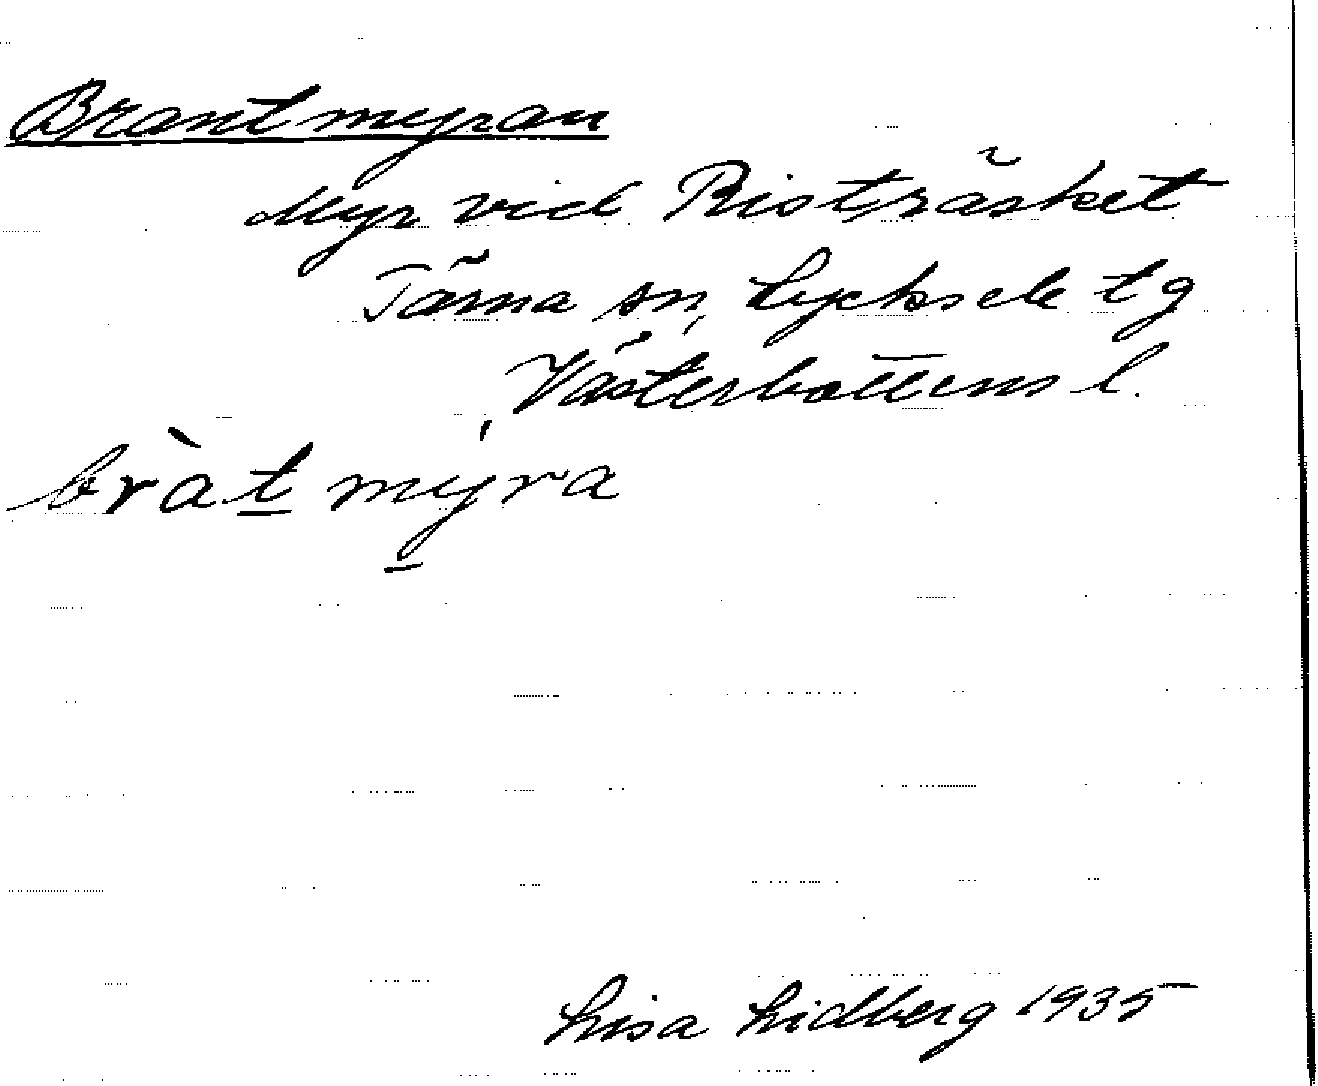 Brantmyran
Myr vid Risträsket
Tärna sn, Lycksele tg
Västerbottens l.
bràt mýra
Lisa Lidberg 1935